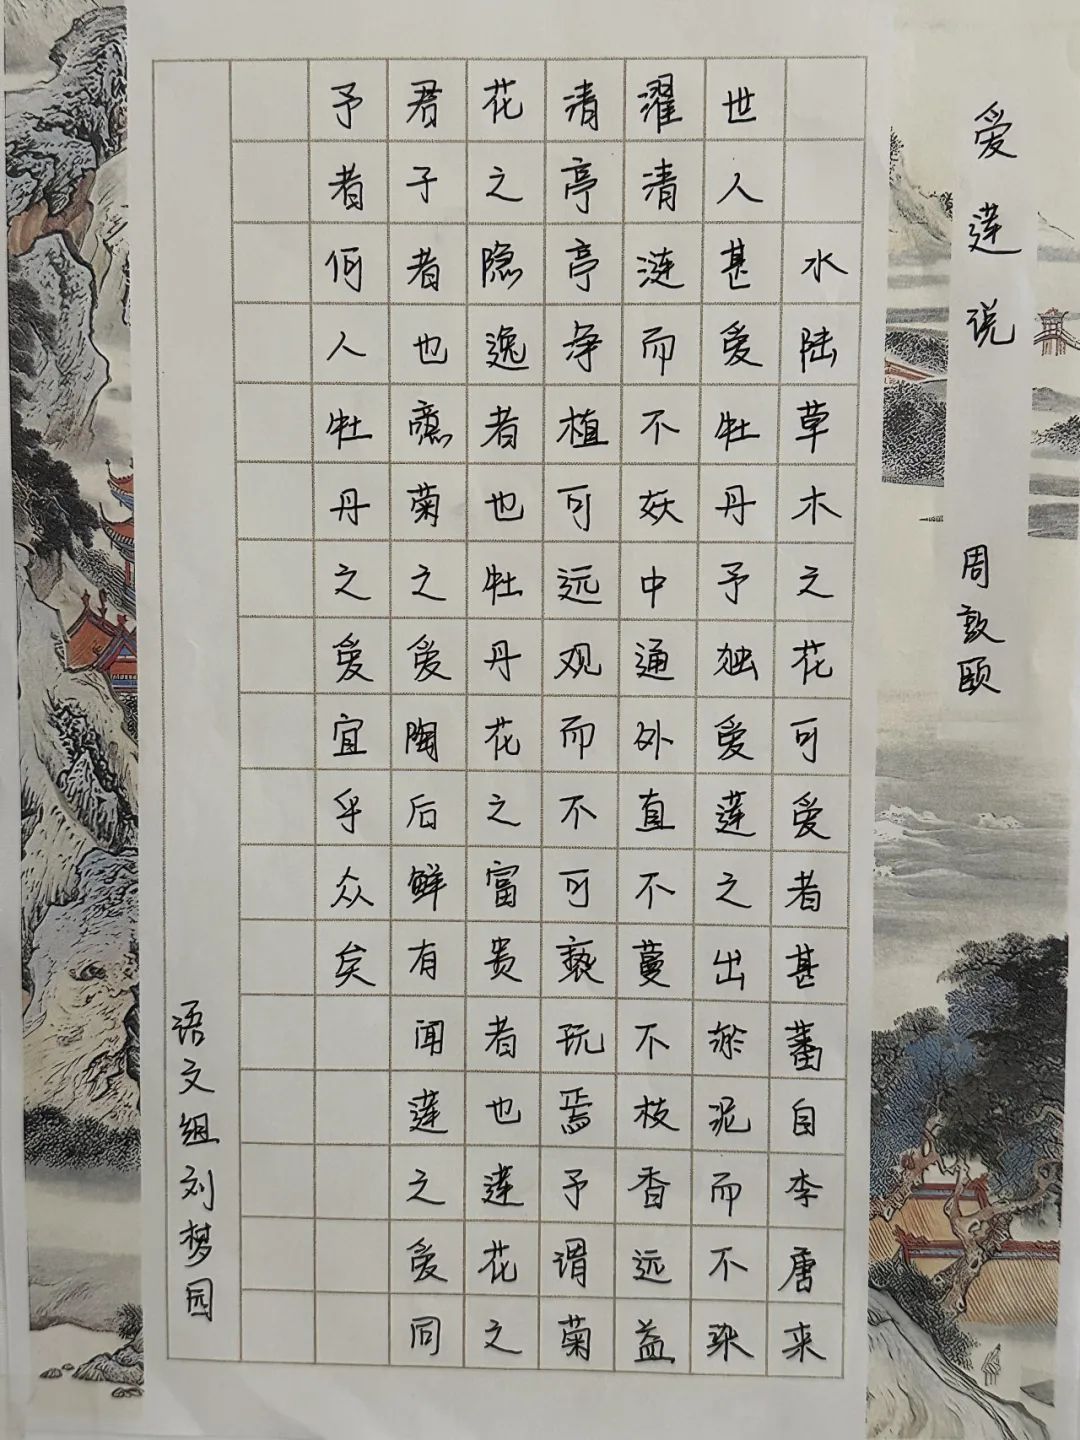 爱莲说 周敦颐
水陆草木之花可爱者甚蕃自李唐来
世人甚爱牡丹予独爱莲之出淤泥而不染
濯清涟而不妖中通外直不蔓不枝香远益
清亭亭净植可远观而不可亵玩焉予谓菊
花之隐逸者也牡丹花之富贵者也莲花之
君子者也菊之爱陶后鲜有闻莲之爱同
予者何人牡丹之爱宜乎众矣
语文组刘梦园